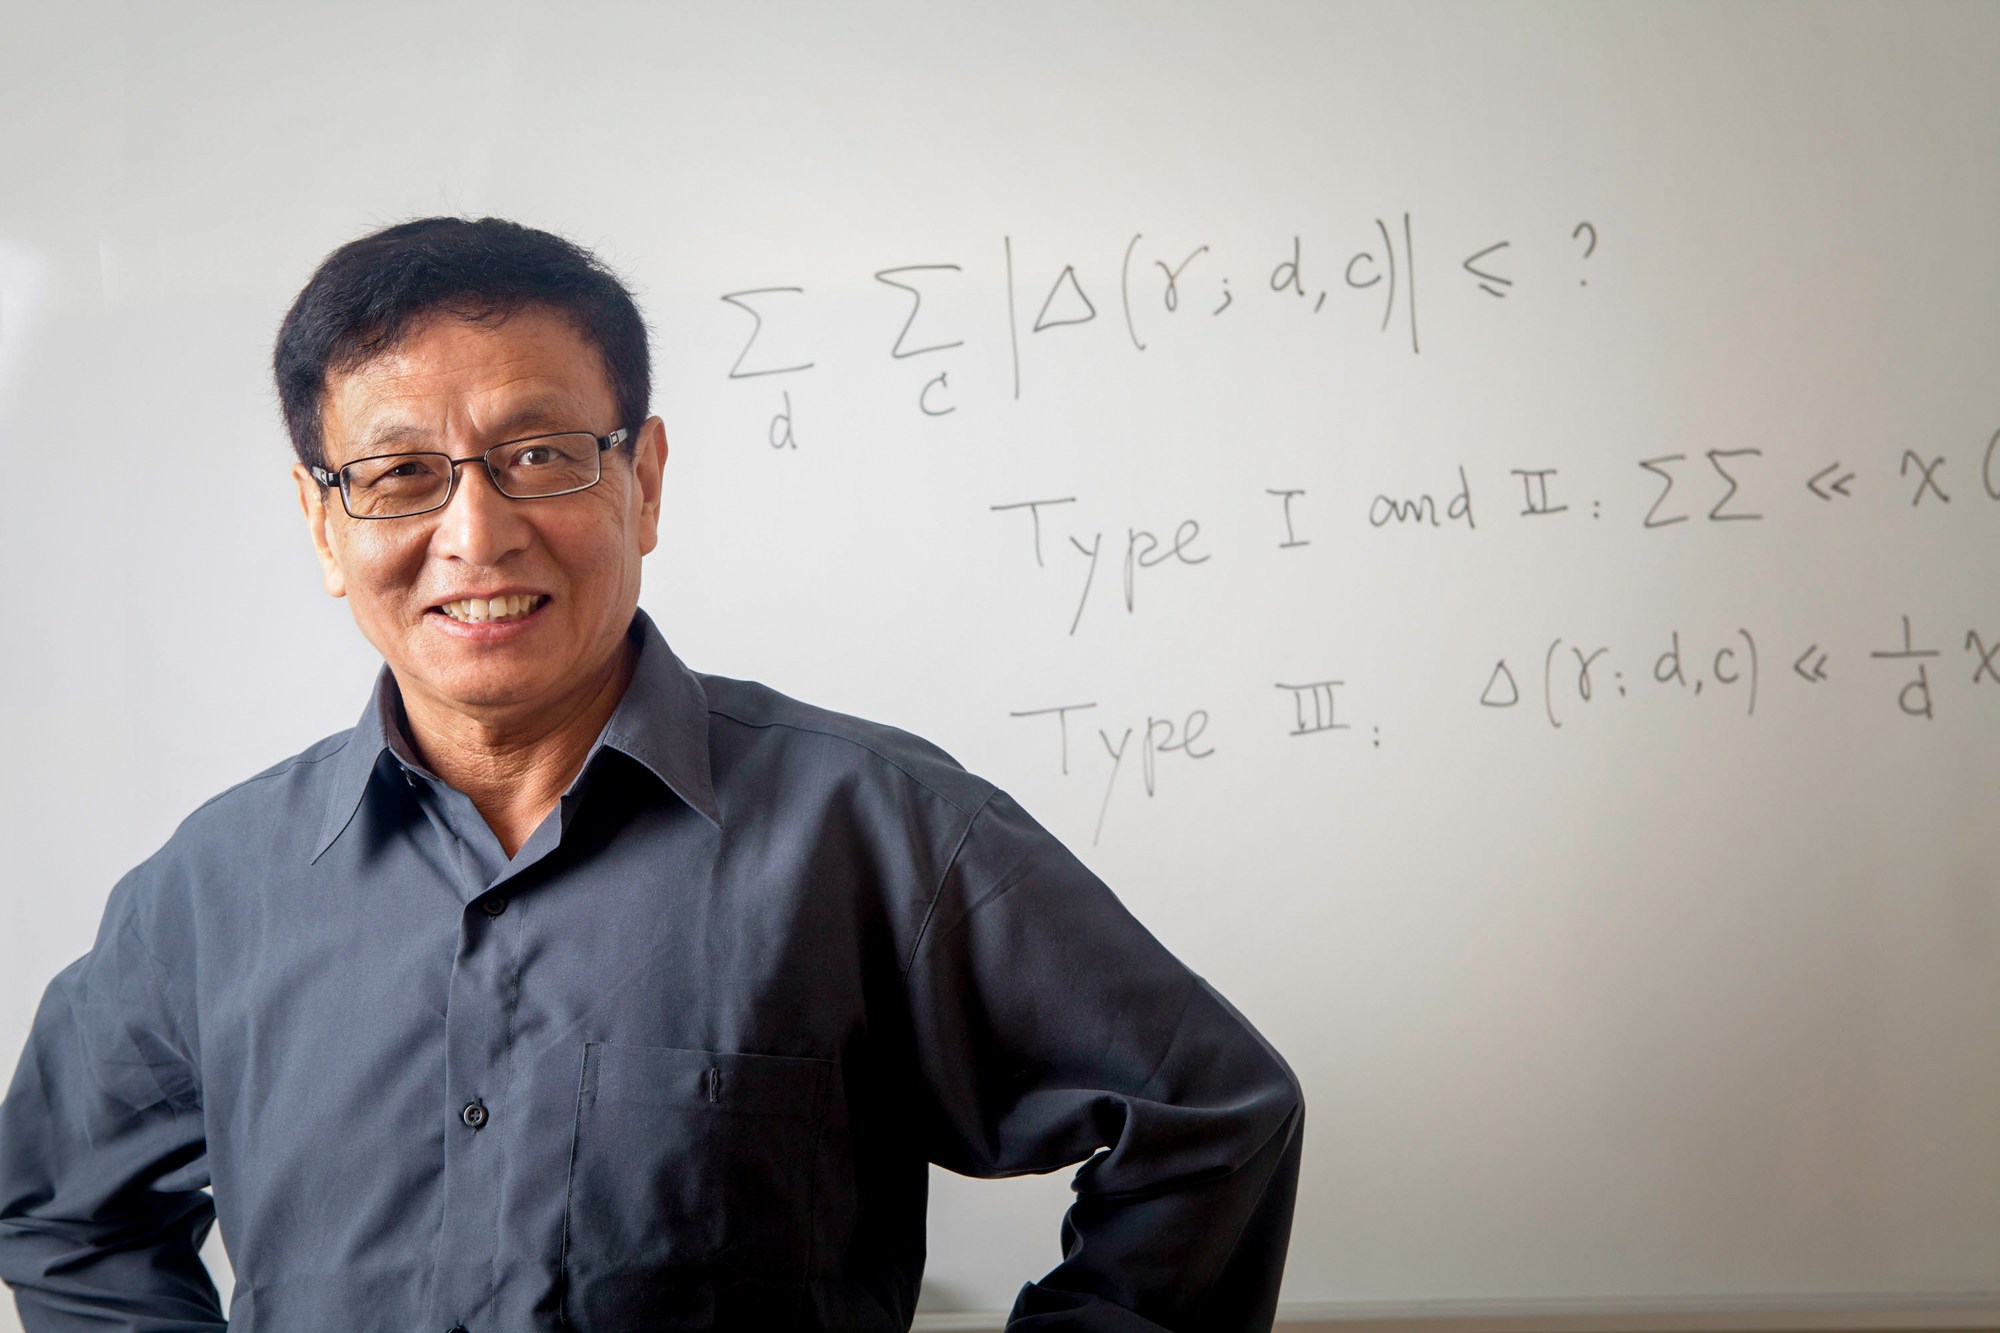 ∑ ∑ |Δ(γ; d, c)| ≤ ?
d c
Type I and II: ∑∑ ≪ x (
Type III: Δ(γ; d, c) ≪ 1/d x